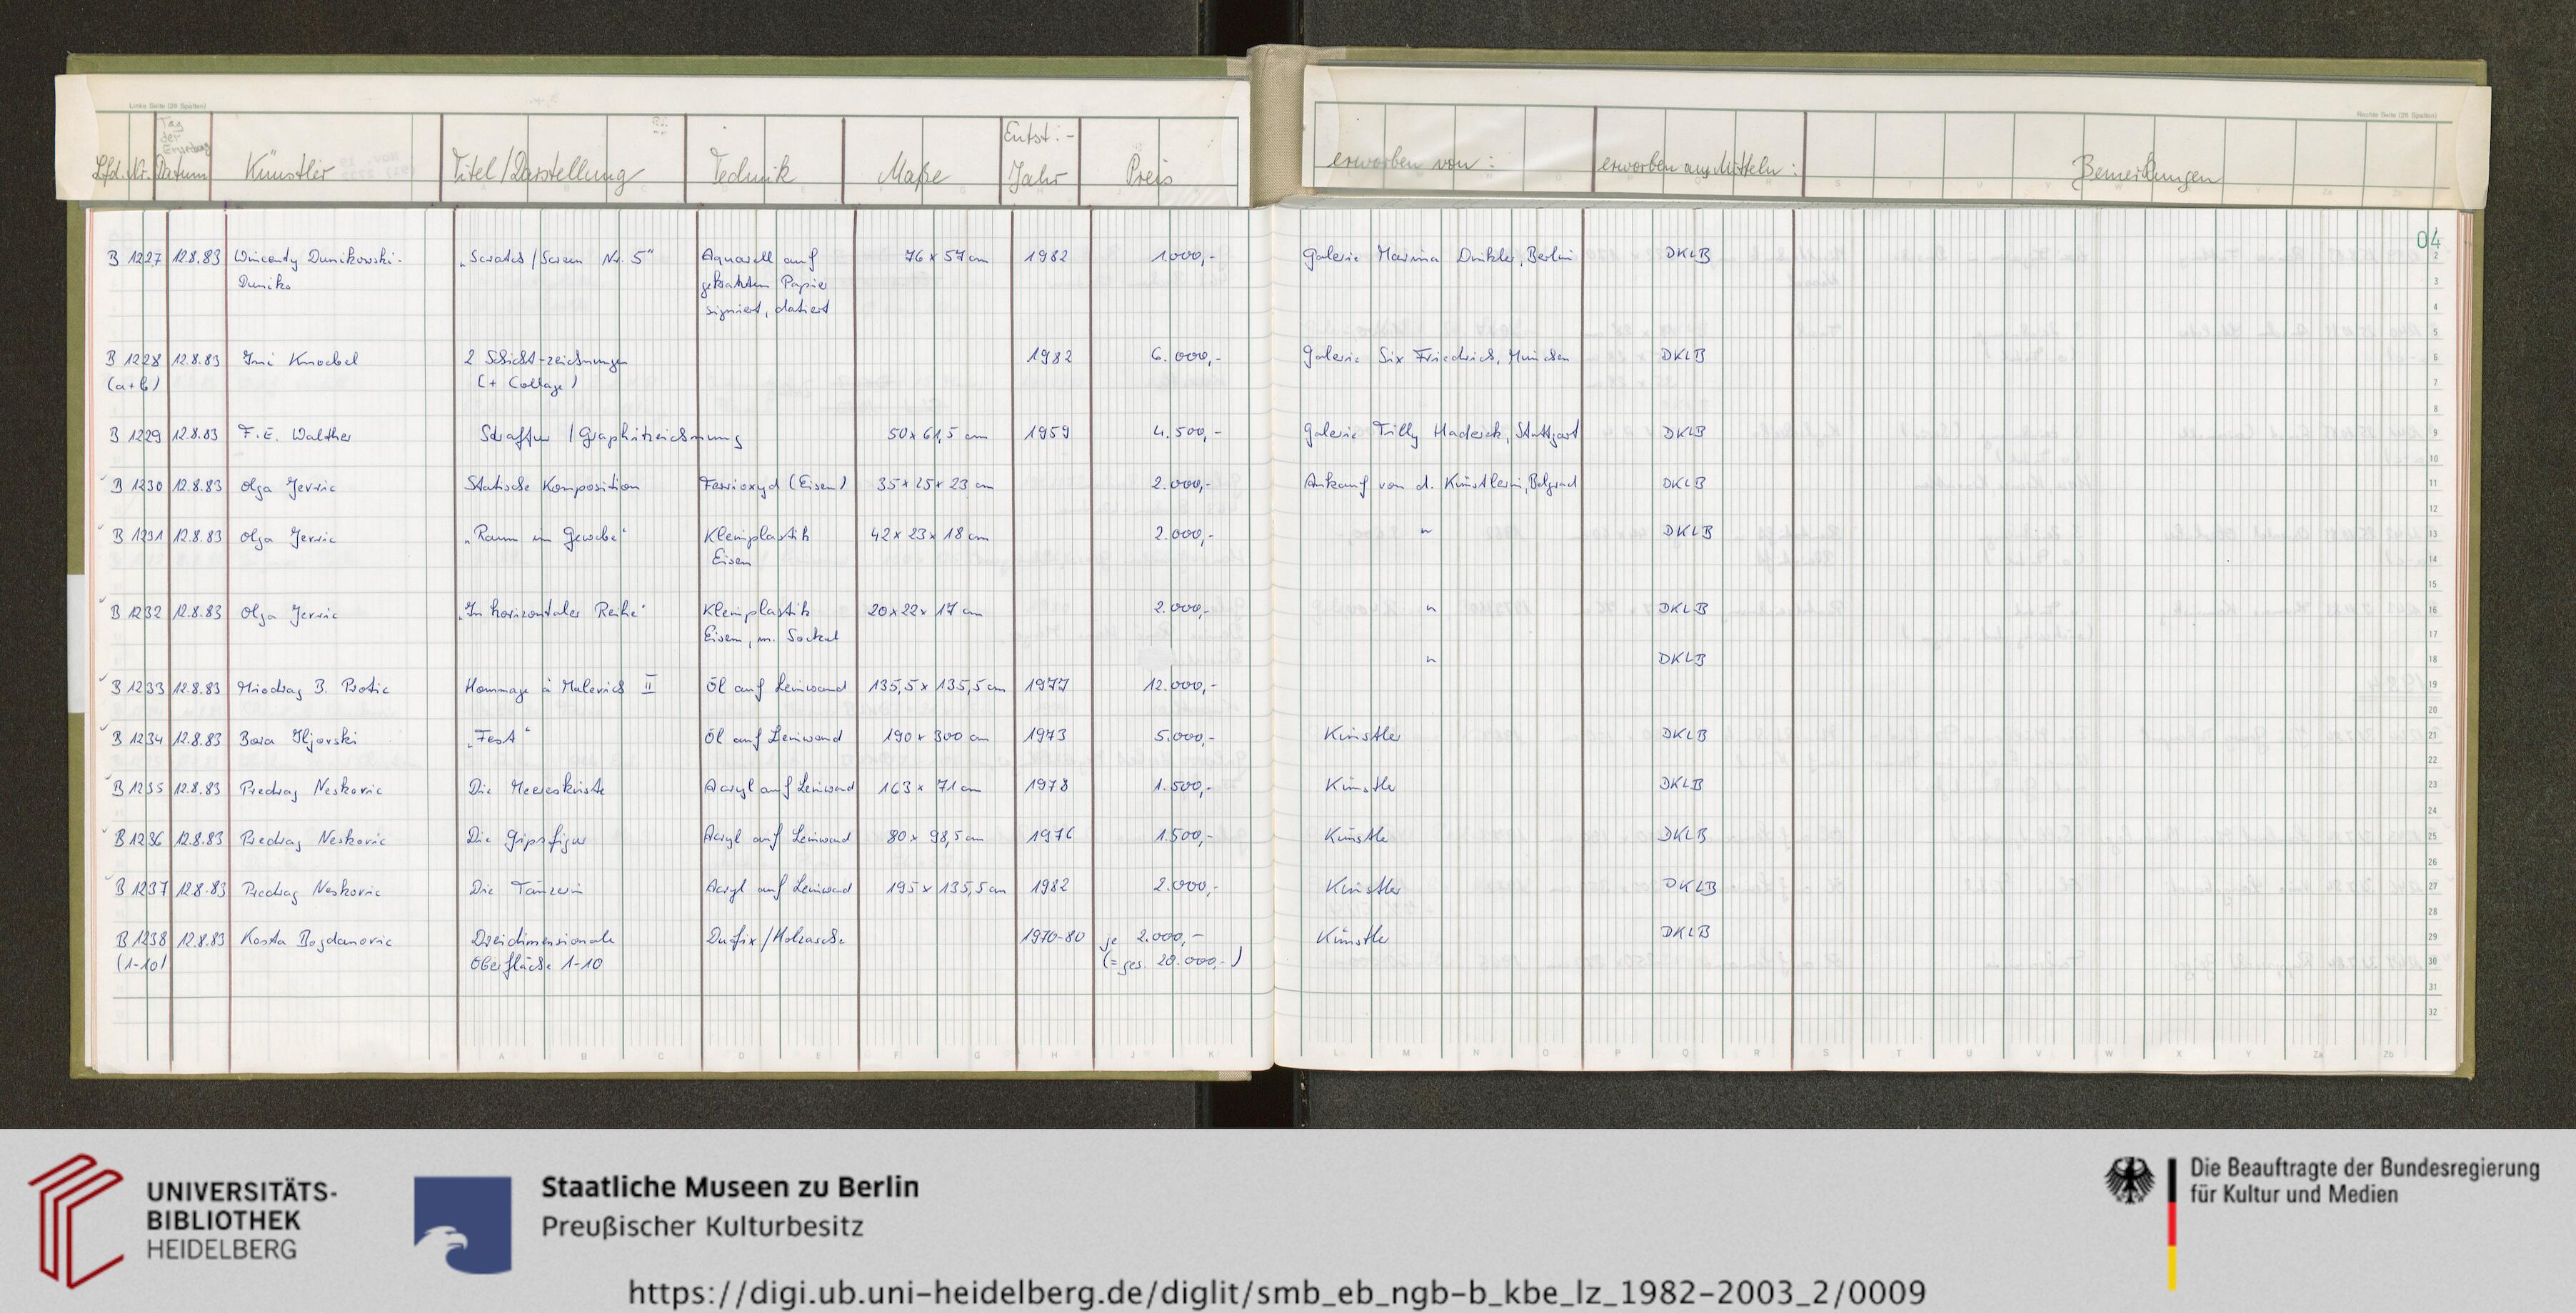 Linke Seite (26 Spalten)
Rechte Seite (26 Spalten)
Lfd. Nr. Tag der Erwerbung Datum Künstler Titel/Darstellung Technik Maße Entst:- Jahr Preis erworben von: erworben aus Mitteln: Bemerkungen
04
B 1227 12.8.83 Wincenty Dunikowski- „Scratch/Screen Nr. 5" Aquarell auf 76 x 57 cm 1982 1.000,- Galerie Marina Dinkler, Berlin DKLB
Duniko gekratztem Papier
signiert, datiert
B 1228 12.8.83 Imi Knoebel 2 Schicht-zeichnungen 1982 6.000,- Galerie Six Friedrich, München DKLB
(a+b) (+ Collage)
B 1229 12.8.83 F.E. Walther Schraffur / Graphitzeichnung 50 x 61,5 cm 1959 4.500,- Galerie Tilly Haderek, Stuttgart DKLB
B 1230 12.8.83 Olga Jevric Statische Komposition Ferrioxyd (Eisen) 35 x 25 x 23 cm 2.000,- Ankauf von d. Künstlerin, Belgrad DKLB
B 1231 12.8.83 Olga Jevric „Raum im Gewebe" Kleinplastik 42 x 23 x 18 cm 2.000,- " DKLB
Eisen
B 1232 12.8.83 Olga Jevric „In horizontaler Reihe" Kleinplastik 20 x 22 x 17 cm 2.000,- " DKLB
Eisen, m. Sockel
" DKLB
B 1233 12.8.83 Miodrag B. Protic Hommage à Malevich II Öl auf Leinwand 135,5 x 135,5 cm 1977 12.000,-
B 1234 12.8.83 Bora Iljovski „Fest" Öl auf Leinwand 190 x 300 cm 1973 5.000,- Künstler DKLB
B 1235 12.8.83 Predrag Neskovic Die Meeresküste Acryl auf Leinwand 163 x 71 cm 1978 1.500,- Künstler DKLB
B 1236 12.8.83 Predrag Neskovic Die Gipsfigur Acryl auf Leinwand 80 x 98,5 cm 1976 1.500,- Künstler DKLB
B 1237 12.8.83 Predrag Neskovic Die Tänzerin Acryl auf Leinwand 195 x 135,5 cm 1982 2.000,- Künstler DKLB
B 1238 12.8.83 Kosta Bogdanovic Dreidimensionale Durfix/Holzasche 1970-80 je 2.000,- Künstler DKLB
(1-10) Oberfläche 1-10 (= ges. 20.000,-)
UNIVERSITÄTS-
BIBLIOTHEK
HEIDELBERG
Staatliche Museen zu Berlin
Preußischer Kulturbesitz
Die Beauftragte der Bundesregierung
für Kultur und Medien
https://digi.ub.uni-heidelberg.de/diglit/smb_eb_ngb-b_kbe_lz_1982-2003_2/0009